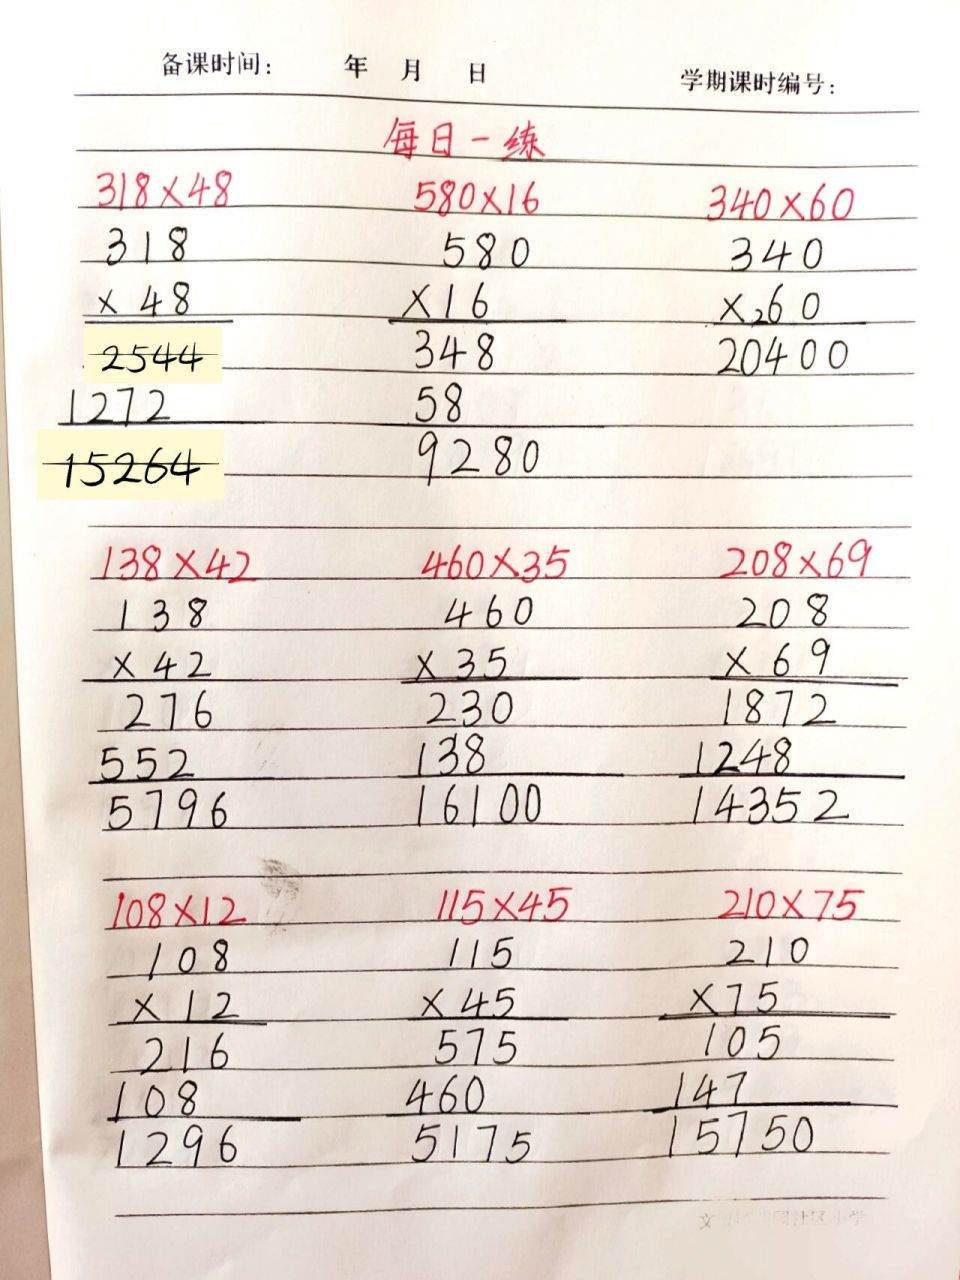 备课时间： 年 月 日 学期课时编号：
每日一练
318×48 580×16 340×60
318 580 340
×48 ×16 ×₂60
2544 348 20400
1272 58
15264 9280
138×42 460×35 208×69
138 460 208
×42 ×35 ×69
276 230 1872
552 138 1248
5796 16100 14352
108×12 115×45 210×75
108 115 210
×12 ×45 ×75
216 575 105
108 460 147
1296 5175 15750
文 社区小学